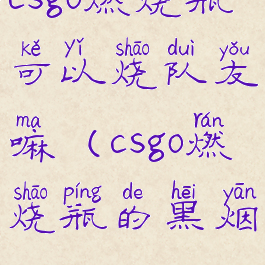 csgo燃烧瓶
kě yǐ shāo duì yǒu
可以烧队友
mạ rán
嘛（csgo燃
shāo píng de hēi yān
烧瓶的黑烟